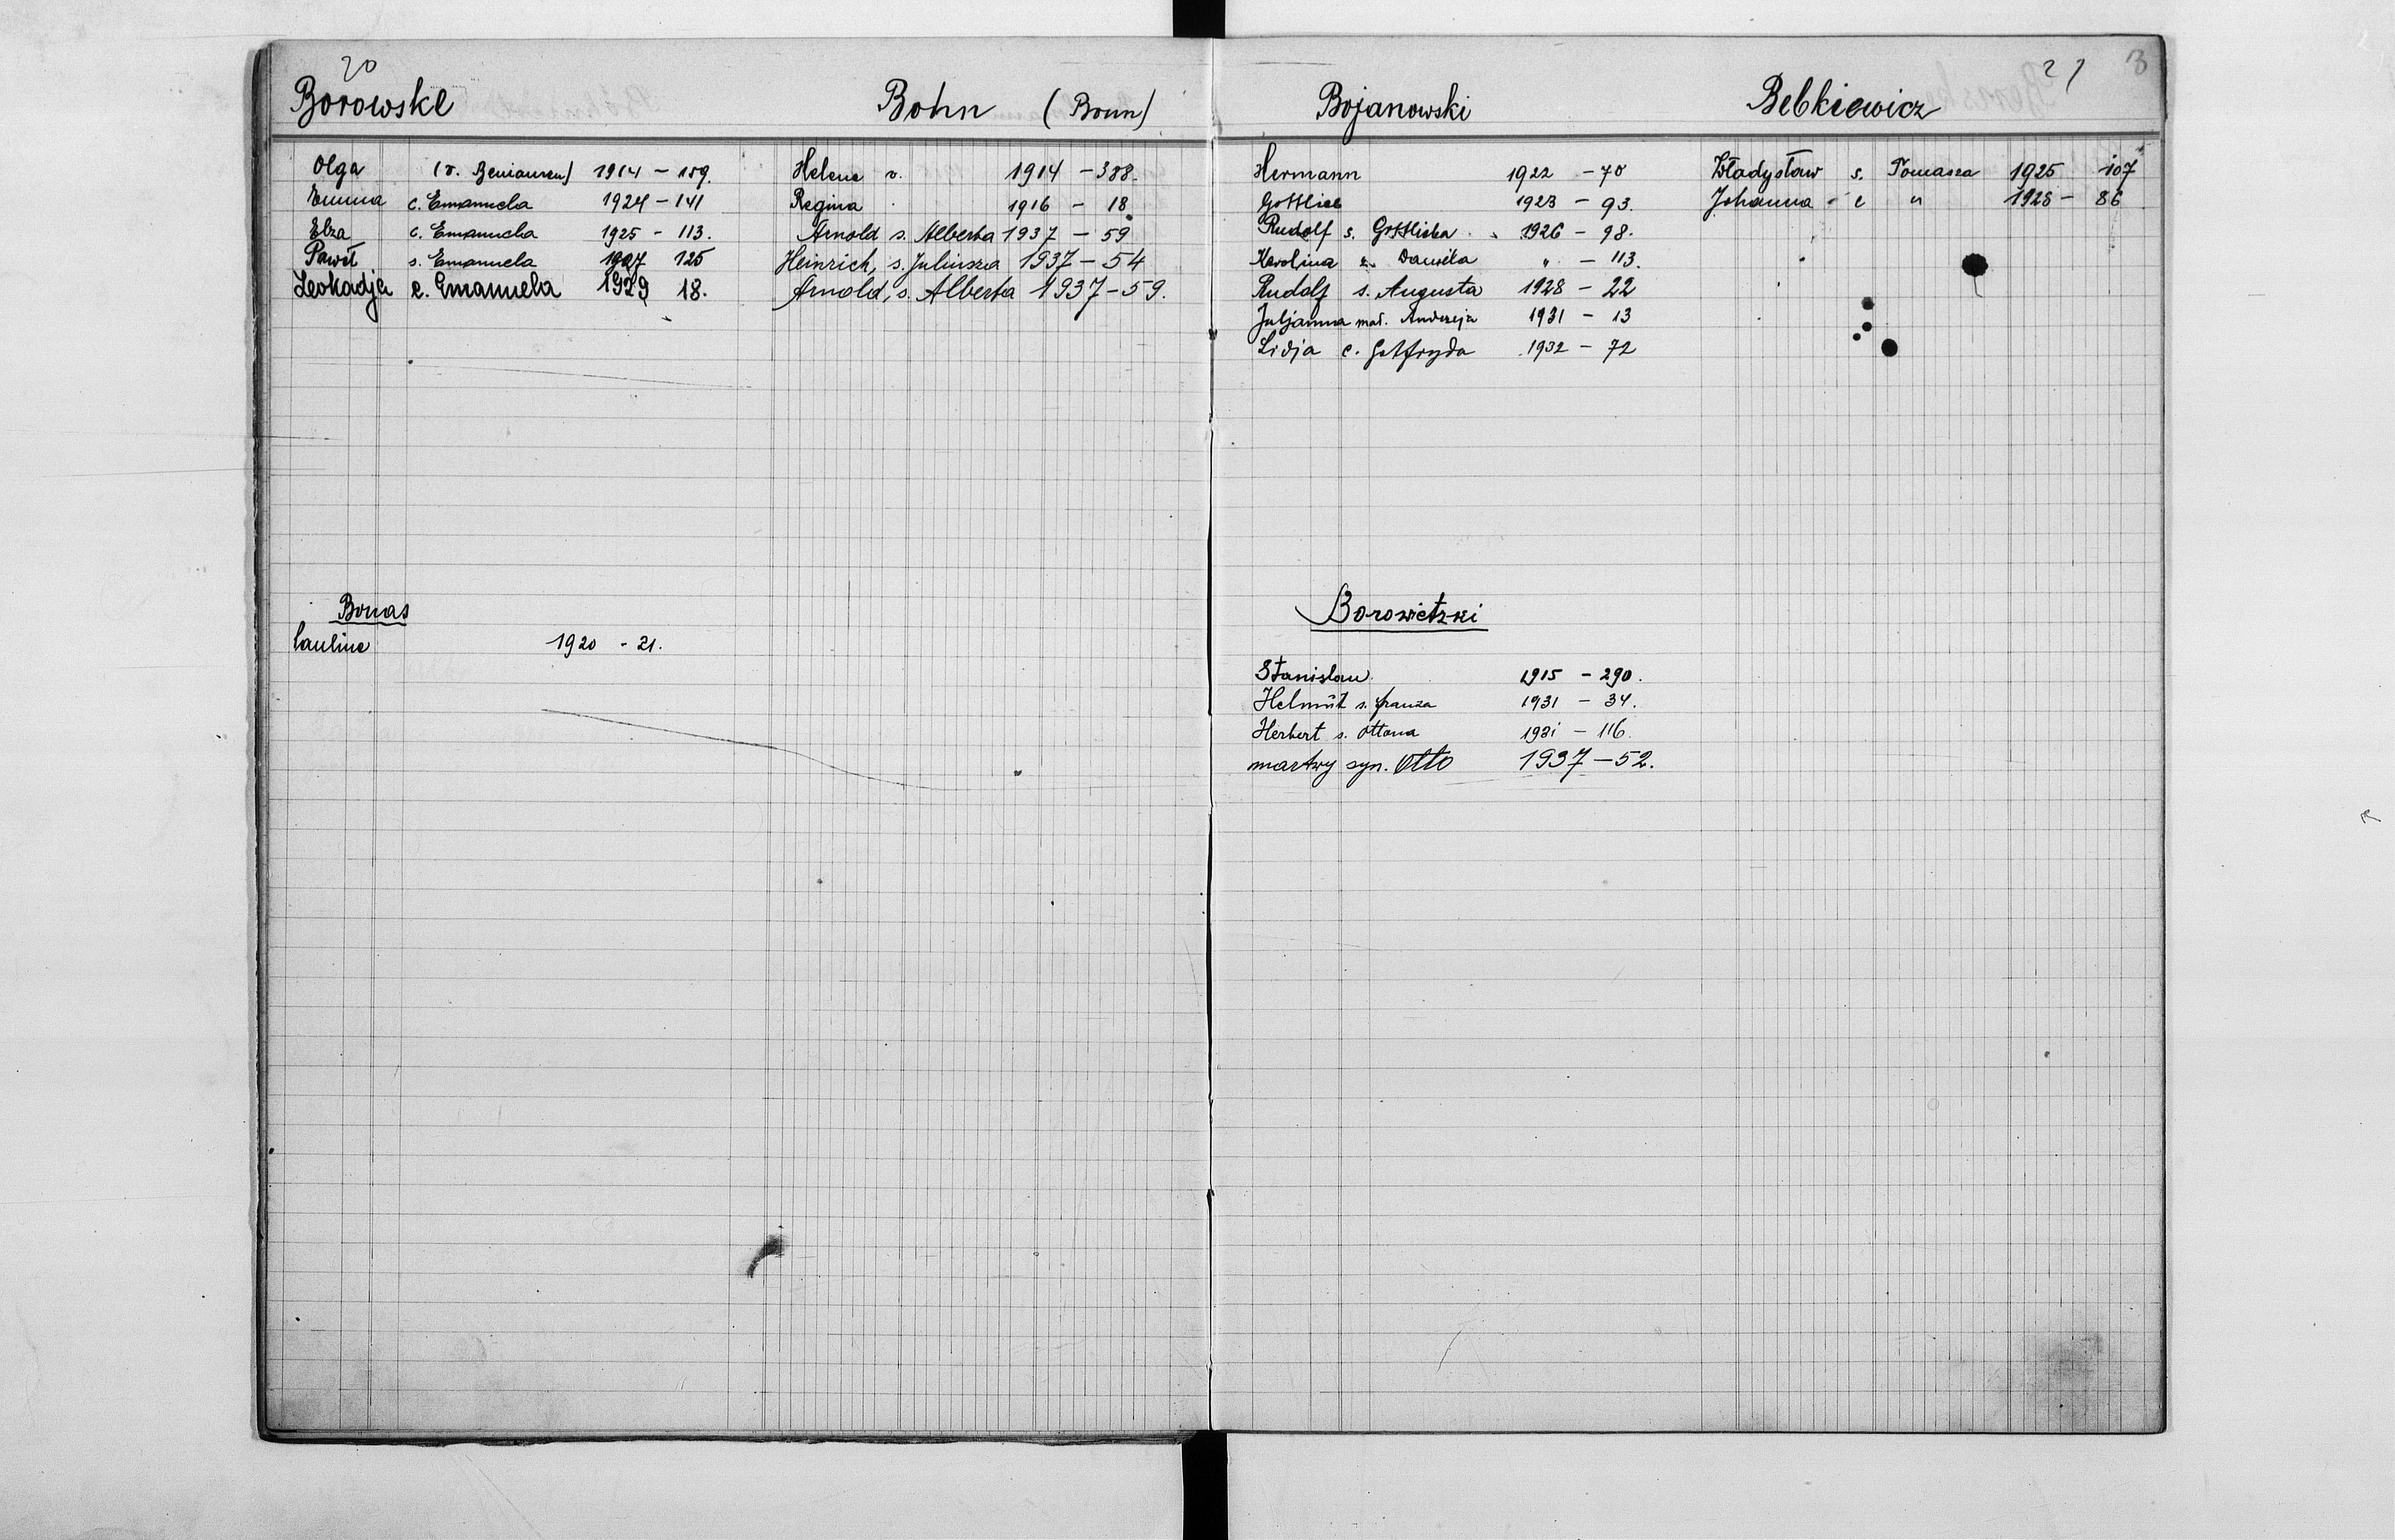 20
Borowske
Olga (v. ) 1914 - 159.
Emma c. Emanuela 1924 - 141
Elza c. Emanuela 1925 - 113.
Paweł s. Emanuela 1927 125
Leokadja c. Emanuela 1929 18.
Bonas
Pauline 1920 - 21.
Bohn (Bonn)
Helene v. 1914 - 388.
Regina 1916 - 18
Arnold s. Alberta 1937 - 59
Heinrich, s. Juliusza 1937 - 54
Arnold, s. Alberta 1937 - 59.
21
Bojanowski
Hermann 1922 - 70
Gottlieb 1923 - 93.
Rudolf s. Gottlieba 1926 - 98.
Karolina Daniela " - 113.
Rudolf s. Augusta 1928 - 22
Juljanna mał. Andrzeja 1931 - 13
Lidja c. Gotfryda 1932 - 72
Borowietzki
Stanislau 1915 - 290.
Helmut s. Franza 1931 - 34.
Herbert s. Ottona 1931 - 116.
martwy syn. Otto 1937 - 52.
Bebkiewicz
Władysław s. Tomasza 1925 107
Johanna - c " 1928 - 86